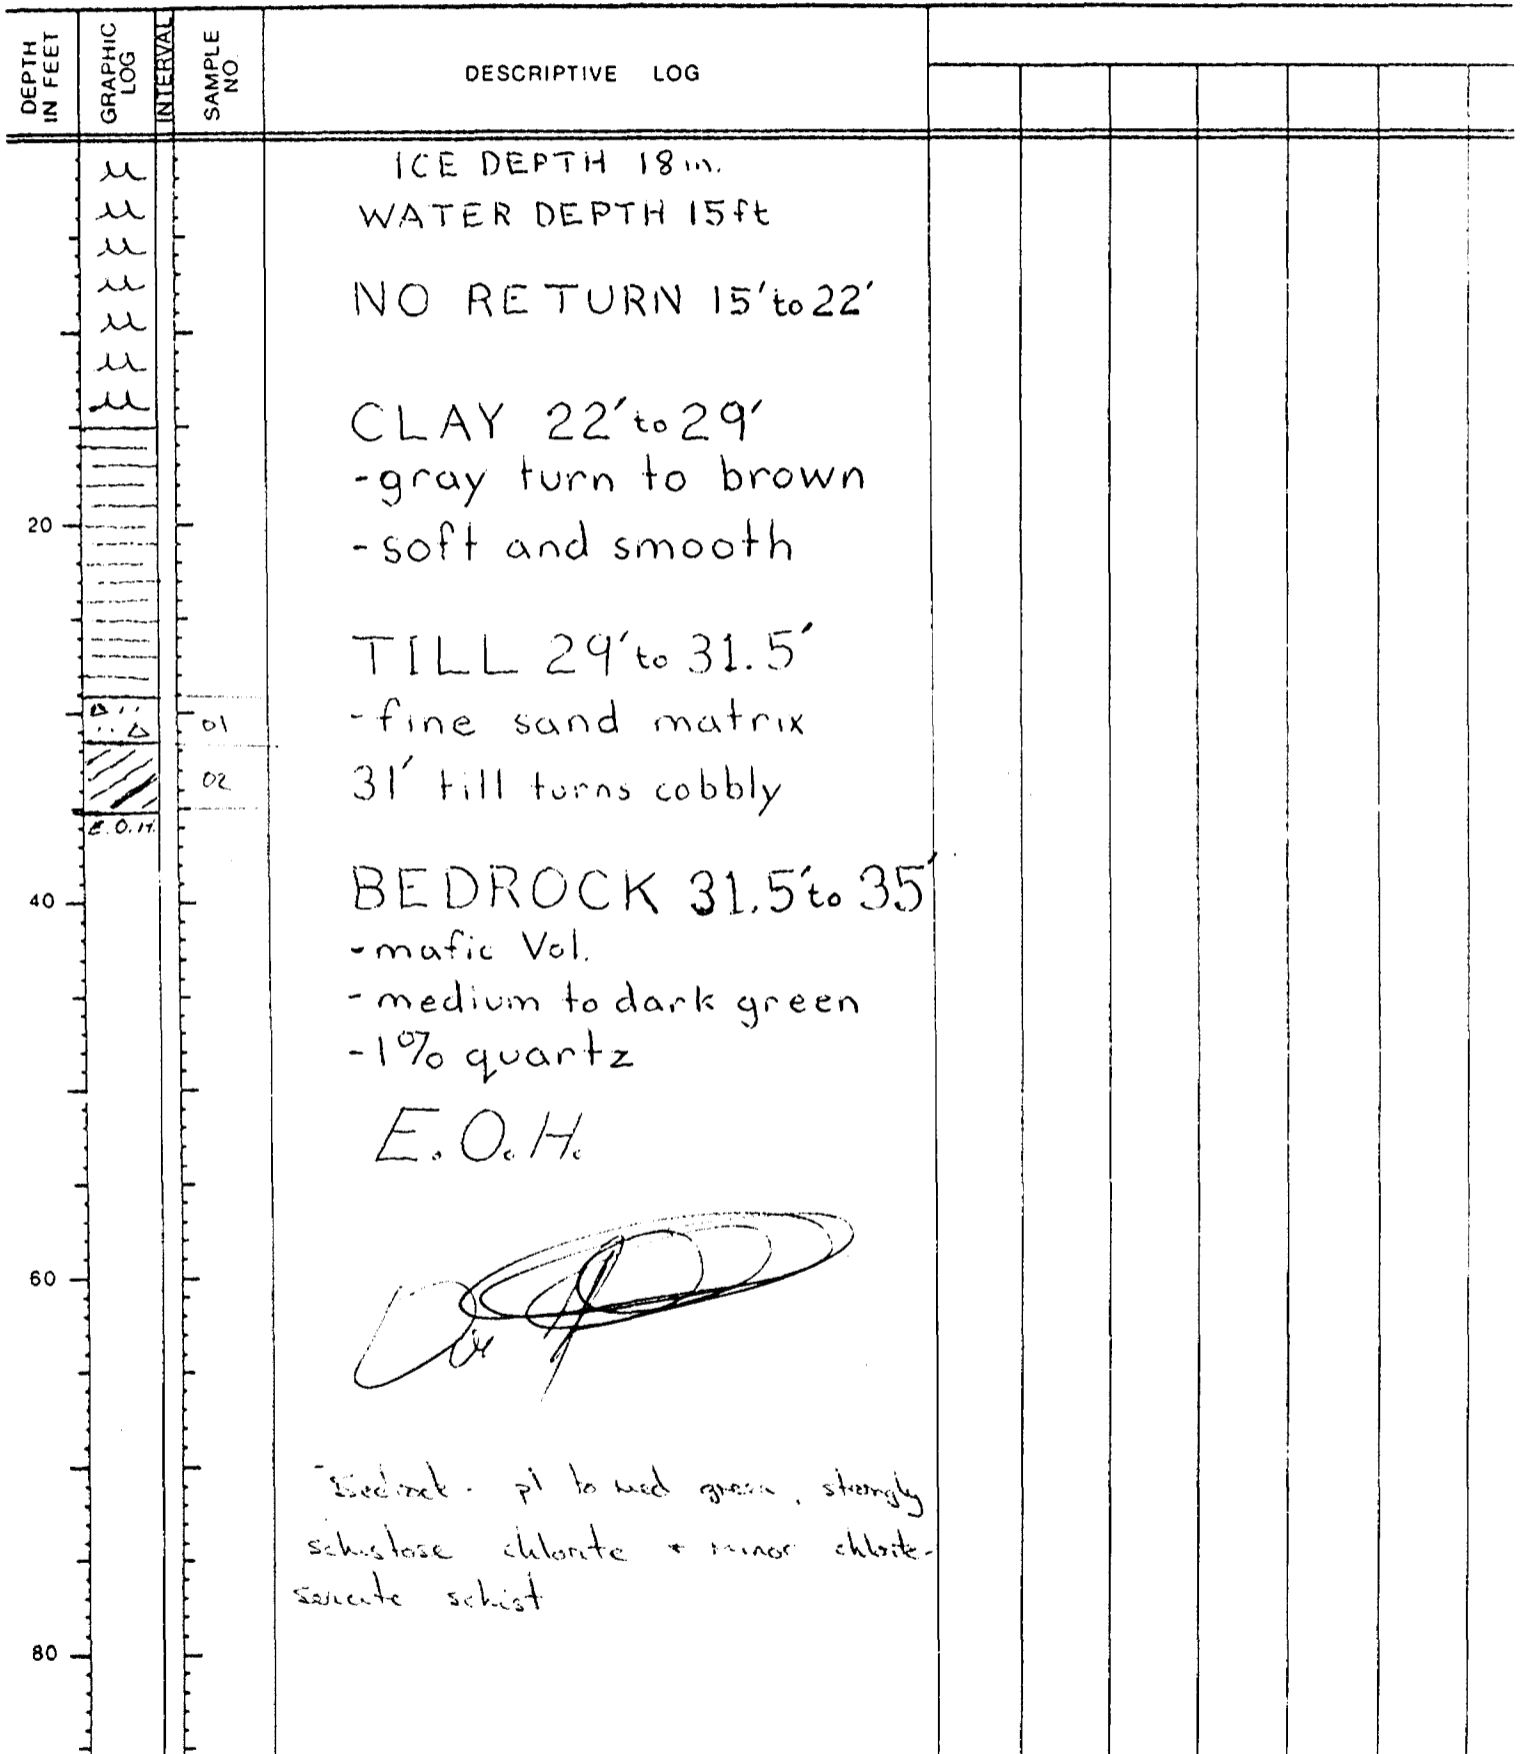 DEPTH IN FEET
GRAPHIC LOG
INTERVAL
SAMPLE NO.
DESCRIPTIVE LOG
ICE DEPTH 18 in.
WATER DEPTH 15ft
NO RETURN 15' to 22'
CLAY 22' to 29'
-gray turn to brown
20
-soft and smooth
TILL 29' to 31.5'
01
-fine sand matrix
02
31' till turns cobbly
E.O.H.
40
BEDROCK 31.5' to 35'
-mafic Vol.
-medium to dark green
-1% quartz
E.O.H.
60
- pl to med green, strongly
schistose chlorite + minor chlorite-
schist
80